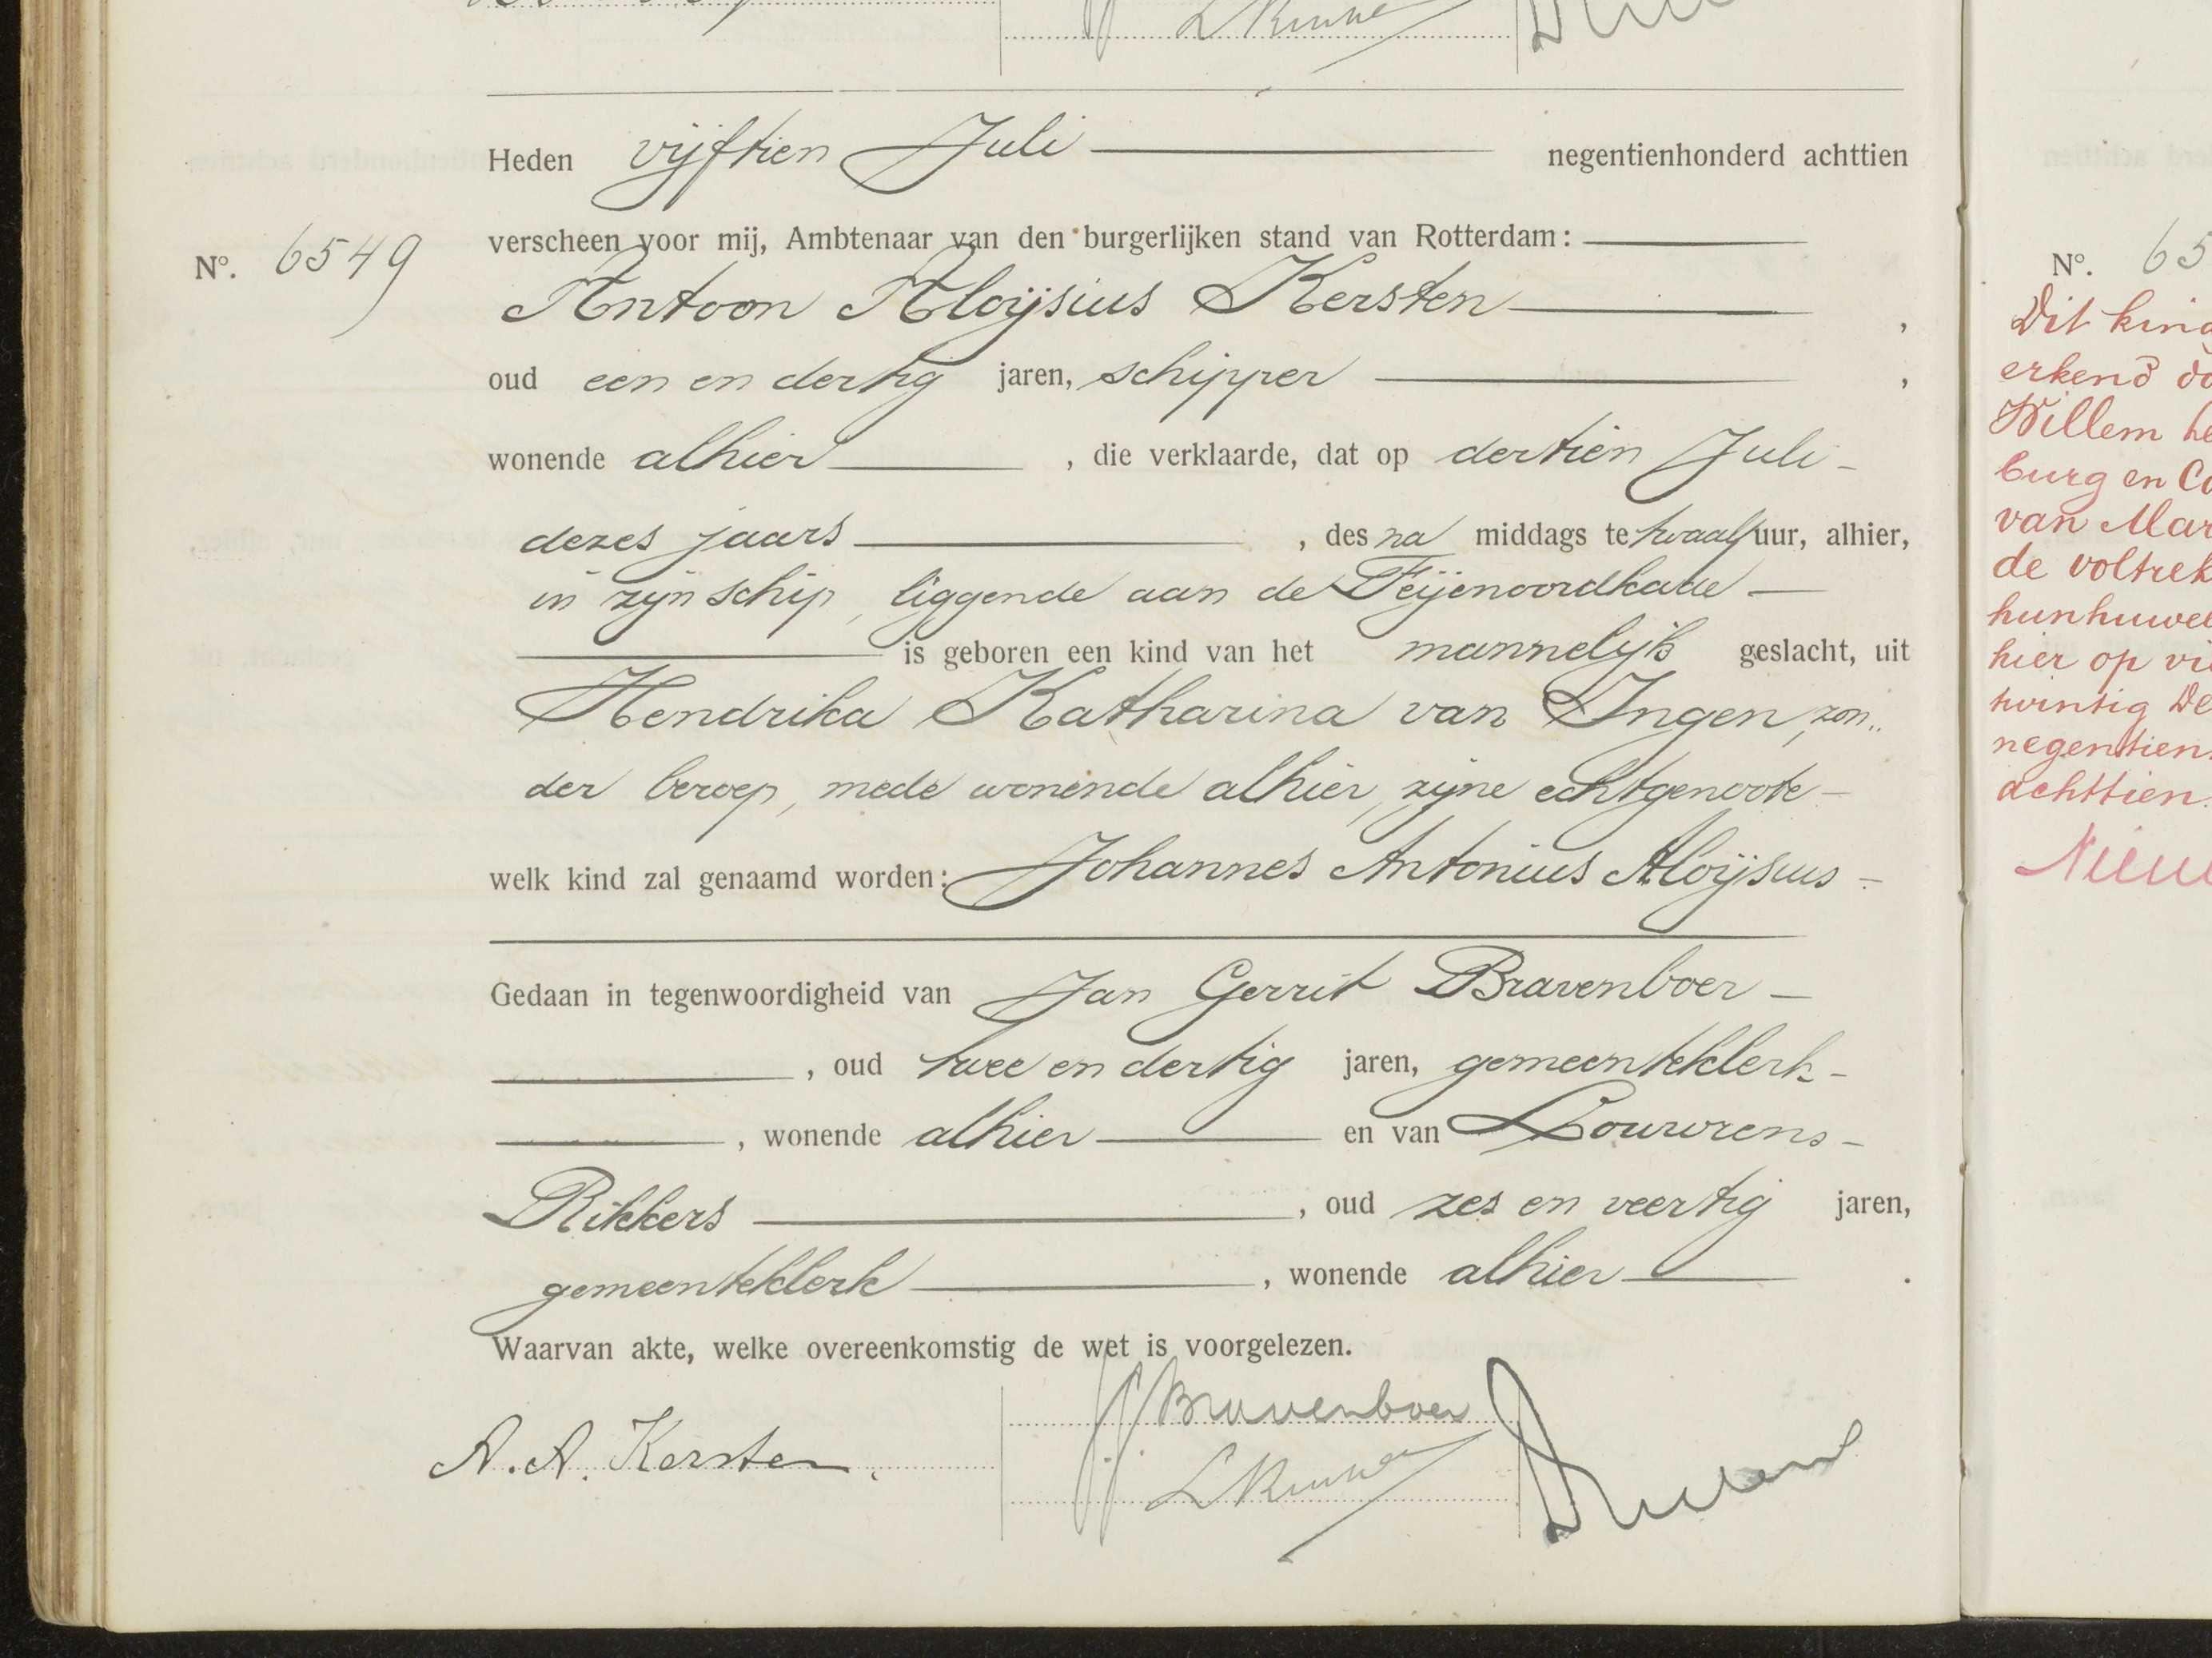 Heden vijftien Juli negentienhonderd achttien
verscheen voor mij, Ambtenaar van den burgerlijken stand van Rotterdam:
Nº. 6549
Antoon Aloijsius Kersten,
oud een en dertig jaren, schipper,
wonende alhier, die verklaarde, dat op dertien Juli
dezes jaars, des na middags te twaalf uur, alhier,
in zijn schip, liggende aan de Feijenoordkade
is geboren een kind van het mannelijk geslacht, uit
Hendrika Katharina van Ingen, zon„
der beroep, mede wonende alhier, zijne echtgenoote
welk kind zal genaamd worden: Johannes Antonius Aloijsius
Gedaan in tegenwoordigheid van Jan Gerrit Bravenboer
, oud twee en dertig jaren, gemeenteklerk
, wonende alhier en van Louwrens
Rikkers, oud zes en veertig jaren,
gemeenteklerk, wonende alhier.
Waarvan akte, welke overeenkomstig de wet is voorgelezen.
JG Bravenboer
A. A. Kersten.
Nº. 65
Dit kind
erkend do
Willem he
burg en Co
van Mar
de voltrek
hun huwel
hier op vi
twintig De
negentien
achttien.